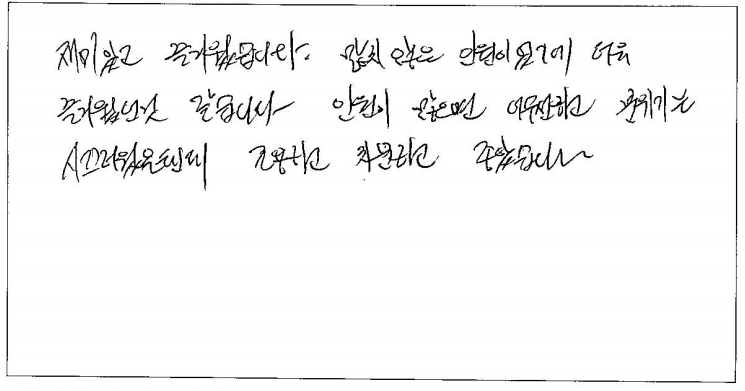 재미있고 즐거웠습니다. 많지 않은 인원이였기에 더욱
즐거웠던것 같습니다 인원이 많으면 어수선하고 분위기는
시끄러웠을텐데 조용하고 차분하고 좋았습니다